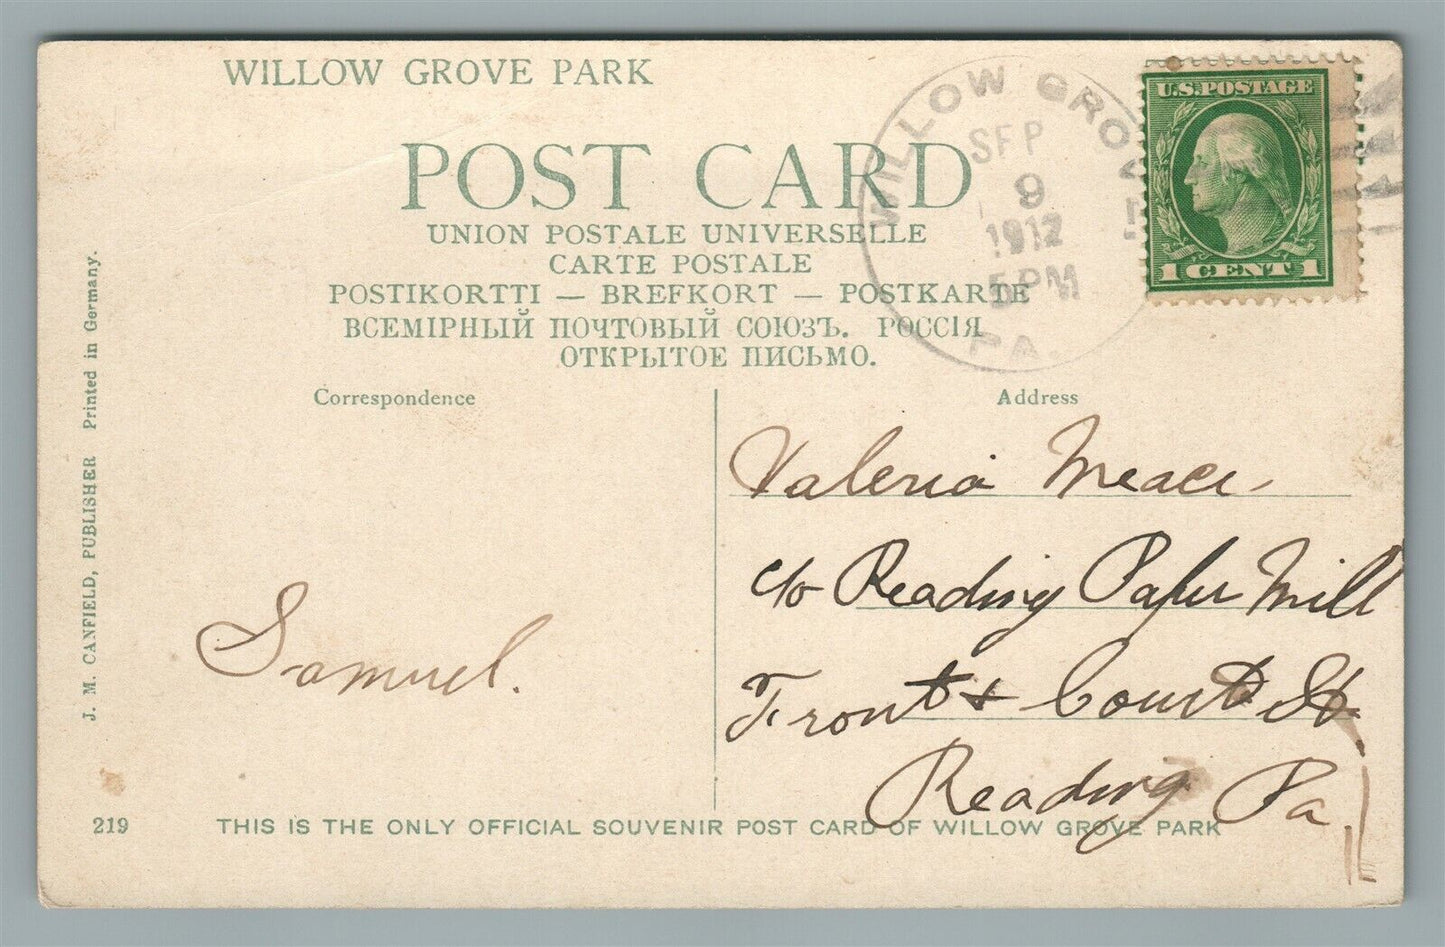 WILLOW GROVE PARK
POST CARD
UNION POSTALE UNIVERSELLE
CARTE POSTALE
POSTIKORTTI — BREFKORT — POSTKARTE
ВСЕМІРНЫЙ ПОЧТОВЫЙ СОЮЗЪ. РОССІЯ
ОТКРЫТОЕ ПИСЬМО.
WILLOW GROVE
SEP
9
1912
5 PM
PA.
U.S. POSTAGE
1 CENT 1
Correspondence
Address
Samuel.
Valeria
c/o Reading Paper Mill
Front & Court St.
Reading Pa.
J. M. CANFIELD, PUBLISHER Printed in Germany.
219
THIS IS THE ONLY OFFICIAL SOUVENIR POST CARD OF WILLOW GROVE PARK